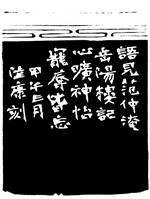 語見范仲淹
岳陽樓記
心曠神怡
寵辱皆忘
甲午三月
陸康刻